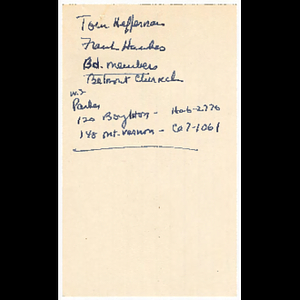 Tom Heffernan
Frank Hawkes
Bd. members
Belmont Church
W.2
Parker
120 Boylston - Ha6-2770
140 Mt. Vernon - Ca7-1061